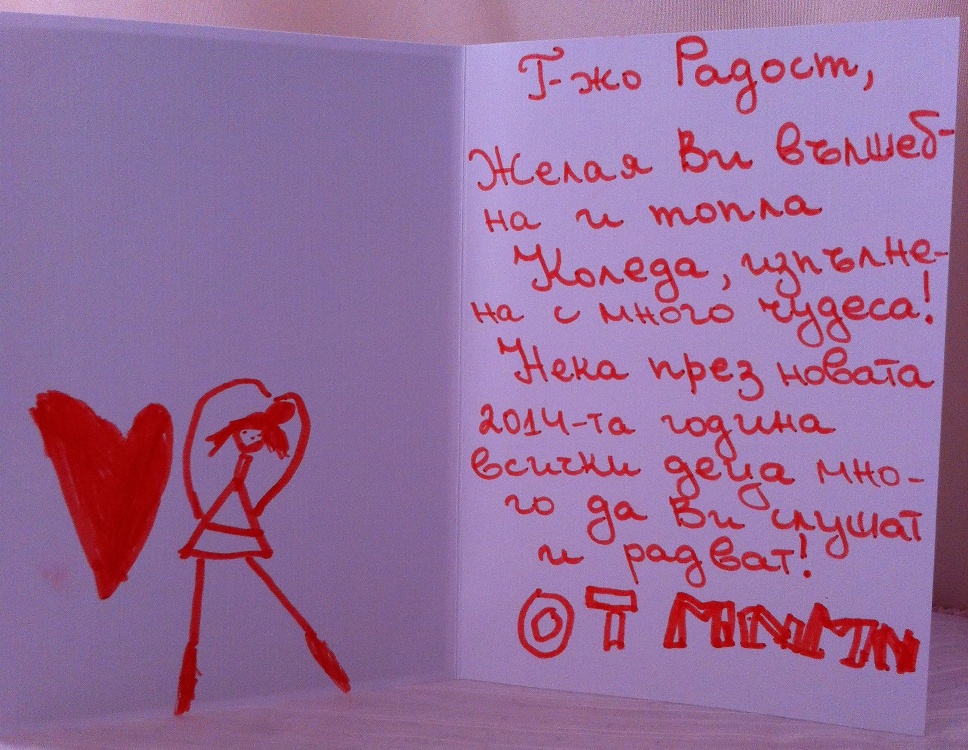 Г-жо Радост,
Желая Ви вълшеб-
на и топла
Коледа, изпълне-
на с много чудеса!
Нека през новата
2014-та година
всички деца мно-
го да Ви слушат
и радват!
ОТ